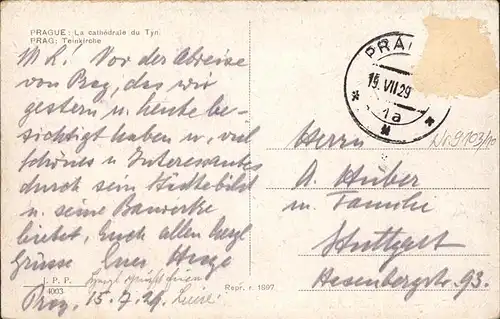 PRAGUE: La cathédrale du Týn.
PRAG: Teinkirche
M. L.! Vor der Abreise
von Prag, das wir
gestern u. heute be-
sichtigt haben u. viel
schönes u. Interessantes
durch sein Städtebild
u. seine Bauwerke
bietet, Euch allen herzl
Grüsse Eures Hugo
Prag, 15.7.29. Luise!
J. P. P.
4003
Repr. r. 1897
PRA
15. VII 29
1a
Nr. 9103/10
Herrn
A. Huber
u. Familie
Stuttgart
Hasenbergstr. 93.